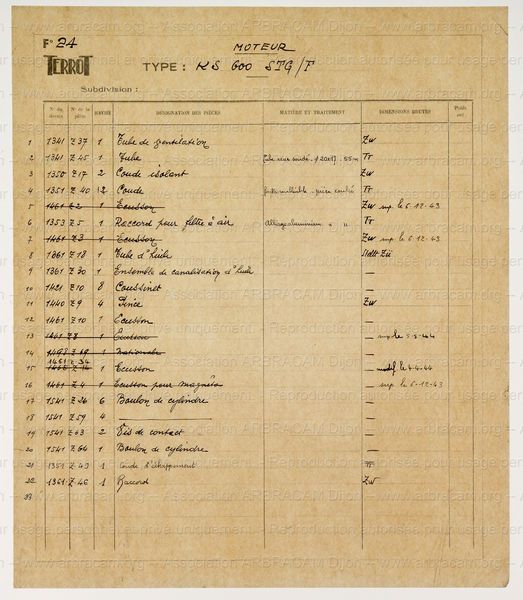 F° 24
MOTEUR
TERROT TYPE : KS 600 STG/F
Subdivision :
N° du dessin N° de la pièce DÉSIGNATION DES PIÈCES MATIÈRE ET TRAITEMENT DIMENSIONS BRUTES Poids
1 1341 Z 37 1 Tube de ventilation Zw
2 1341 Z 45 1 Tube Tr
3 1350 Z 17 2 Coude isolant Zw
4 1351 Z 40 12 Coude Tr
5 1461 Z 2 1 Ecusson Zw sup le 6-12-43
6 1353 Z 5 1 Raccord pour filtre à air Tr
7 1461 Z 3 1 Ecusson Zw sup le 6-12-43
8 1361 Z 18 1 Tube d'huile
9 1361 Z 30 1 Ensemble de canalisation d'huile —
10 1421 Z 10 8 Coussinet —
11 1440 Z 9 4 Pince Zw
12 1461 Z 10 1 Ecusson —
13 1461 Z 8 1 Ecusson —
14 1 —
1461 Z 34
15 1 Ecusson — modif le 4-4-44
16 1461 Z 4 1 Ecusson pour magnéto — sup le 6-12-43
17 1541 Z 36 6 Boulon de cylindre —
18 1541 Z 59 4 —
19 1541 Z 63 2 Vis de contact —
20 1541 Z 64 1 Boulon de cylindre —
21 1351 Z 49 1 Coude d'échappement
22 1361 Z 46 1 Raccord Zw
23
www.arbracam.org – Association ARBRACAM Dijon – Reproduction autorisée pour usage personnel et privé uniquement